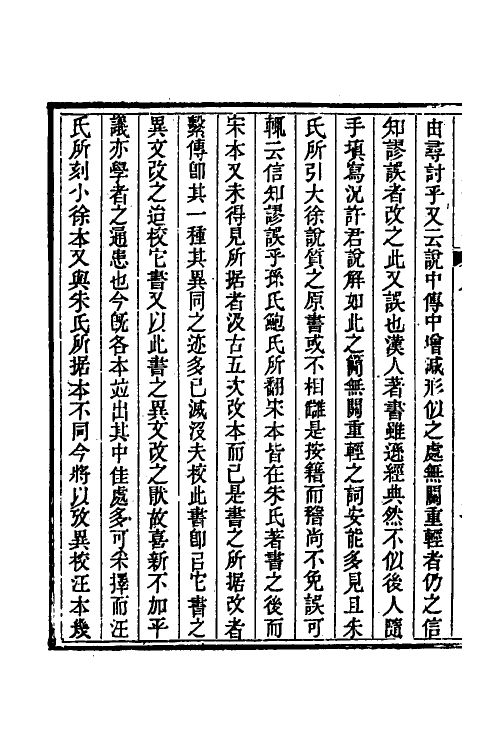 由尋討乎又云說中傳中增減形似之處無關重輕者仍之信
知謬誤者改之此又誤也漢人著書雖遜經典然不似後人隨
手填寫況許君說解如此之簡無關重輕之詞安能多見且朱
氏所引大徐說質之原書或不相讎是按籍而稽尚不免誤可
輒云信知謬誤乎孫氏鮑氏所翻宋本皆在朱氏著書之後而
宋本又未得見所据者汲古五次改本而已是書之所据改者
繫傳卽其一種其異同之迹多已滅沒夫校此書卽㠯它書之
異文改之迨校它書又以此書之異文改之猒故喜新不加平
議亦學者之通患也今旣各本竝出其中佳處多可采擇而汪
氏所刻小徐本又與朱氏所据本不同今將以攷異校汪本幾